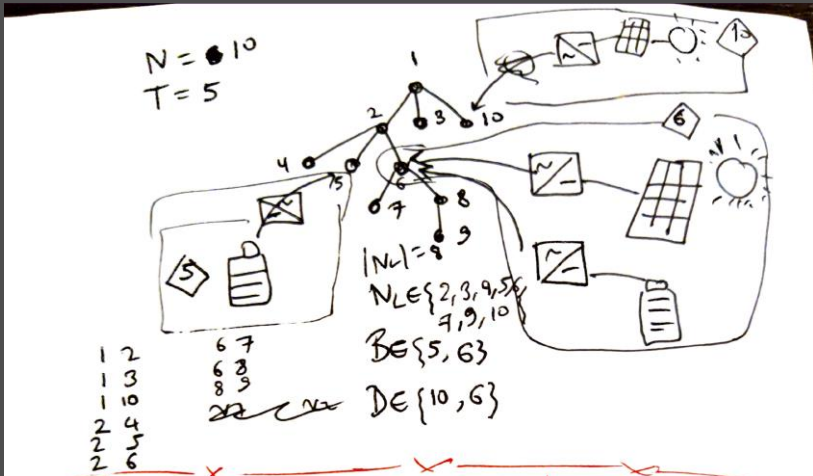 N = 10
T = 5
1
2
3
10
4
5
6
7
8
9
10
6
5
|NL|=8
NL∈{2,3,4,5,6,
7,9,10}
B∈{5,6}
D∈{10,6}
1 2
1 3
1 10
2 4
2 5
2 6
6 7
6 8
8 9